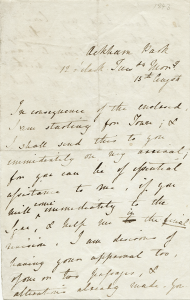 Ockham Park
15th August
In consequence of the enclosed
I am starting for Town; &
I shall send this to you
immediately on my arrival;
for you can be of essential
assistance to me, if you
will come immediately to the
& help me the final
revision. I am desirous of
having your approval too,
of one or two passages, &
alterations already made. You